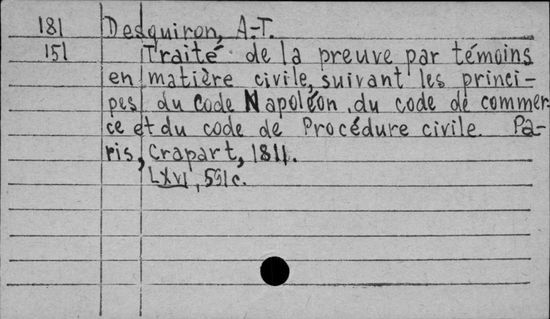 181 Desquiron, A-T.
151 Traité de la preuve par témoins
en matière civile, suivant les princi-
pes du Code Napoléon, du code de commer-
ce et du code de Procédure civile. Pa-
ris, Crapart, 1811.
LXVI, 591c.